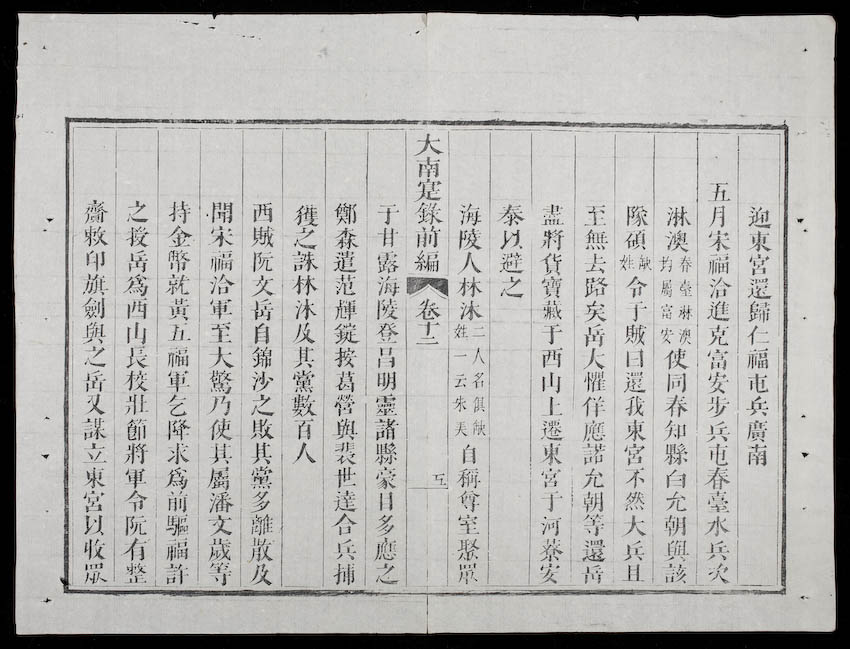 迎東宮還歸仁福屯兵廣南
五月宋福洽進克富安步兵屯春臺水兵次
淋澳春臺淋澳均屬富安使同春知縣白允朝與該
隊碩缺姓令于賊曰還我東宮不然大兵且
至無去路矣岳大懼佯應諾允朝等還岳
盡將貨寶藏于西山上遷東宮于河寮安
泰以避之
海陵人林沐二人名俱缺姓一云朱美自稱尊室聚眾
大南寔錄前編 卷十二
于甘露海陵登昌明靈諸縣豪目多應之
鄭森遣范輝錠按葛營與裴世達合兵捕
獲之誅林沐及其黨數百人
西賊阮文岳自錦沙之敗其黨多離散及
聞宋福洽軍至大驚乃使其屬潘文歲等
持金幣就黃五福軍乞降求爲前驅福許
之授岳爲西山長校壯節將軍令阮有整
齎敕印旗劍與之岳又謀立東宮以收眾